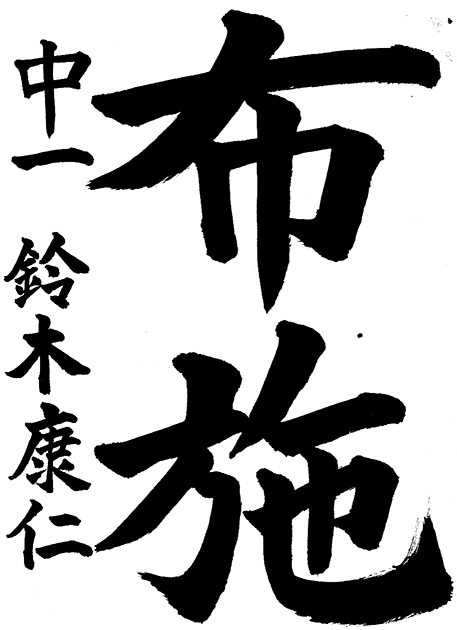 布施
中一 鈴木康仁